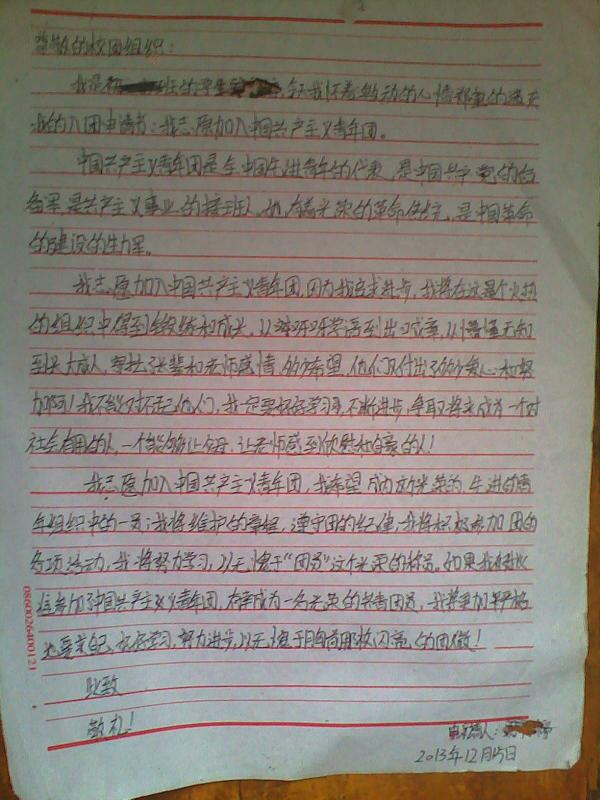 尊敬的校团组织：
我是初 班的学生 ，今天我怀着激动的心情郑重的递交
我的入团申请书：我志愿加入中国共产主义青年团。
中国共产主义青年团是全中国先进青年的代表，是中国共产党的后
备军，是共产主义事业的接班人，她有着光荣的革命传统，是中国革命
的建设的生力军。
我志愿加入中国共产主义青年团，因为我追求进步，我将在这是个火热
的组织中得到锻练和成长，从牙牙学语到出口成章，从懵懂无知
到长大成人，寄托长辈和老师感情的希望，他们又付出了的少爱心和努
力啊！我不能对不起他们，我一定要好好学习，不断进步，争取将来成为一个对
社会有用的人，一个能够让父母、让老师感到欣慰和自豪的人！
我志愿加入中国共产主义青年团，我希望成为这光荣的、先进的青
年组织中的一员；我将维护的章程，遵守团的纪律；我将积极参加团的
各项活动，我将努力学习，以无愧于“团员”这个光荣的称号，如果我
加了中国共产主义义青年团，有幸成为一名光荣的共青团员，我将更加严格
地要求自己，好好学习，努力进步，以无愧于胸前那枚闪亮的团徽！
此致
敬礼！
申请人：
2013年12月5日
0860026400121